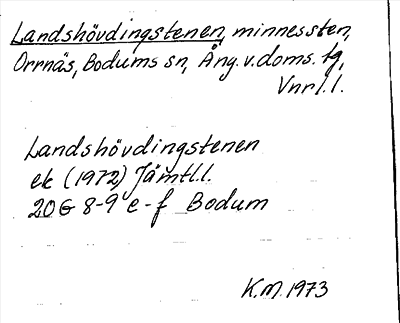 Landshövdingstenen, minnessten,
Orrnäs, Bodums sn, Ång. v. doms. tg,
Vnrl. l.
Landshövdingstenen
ek (1972) Jämtl. l.
20G 8-9 e-f Bodum
K.M. 1973